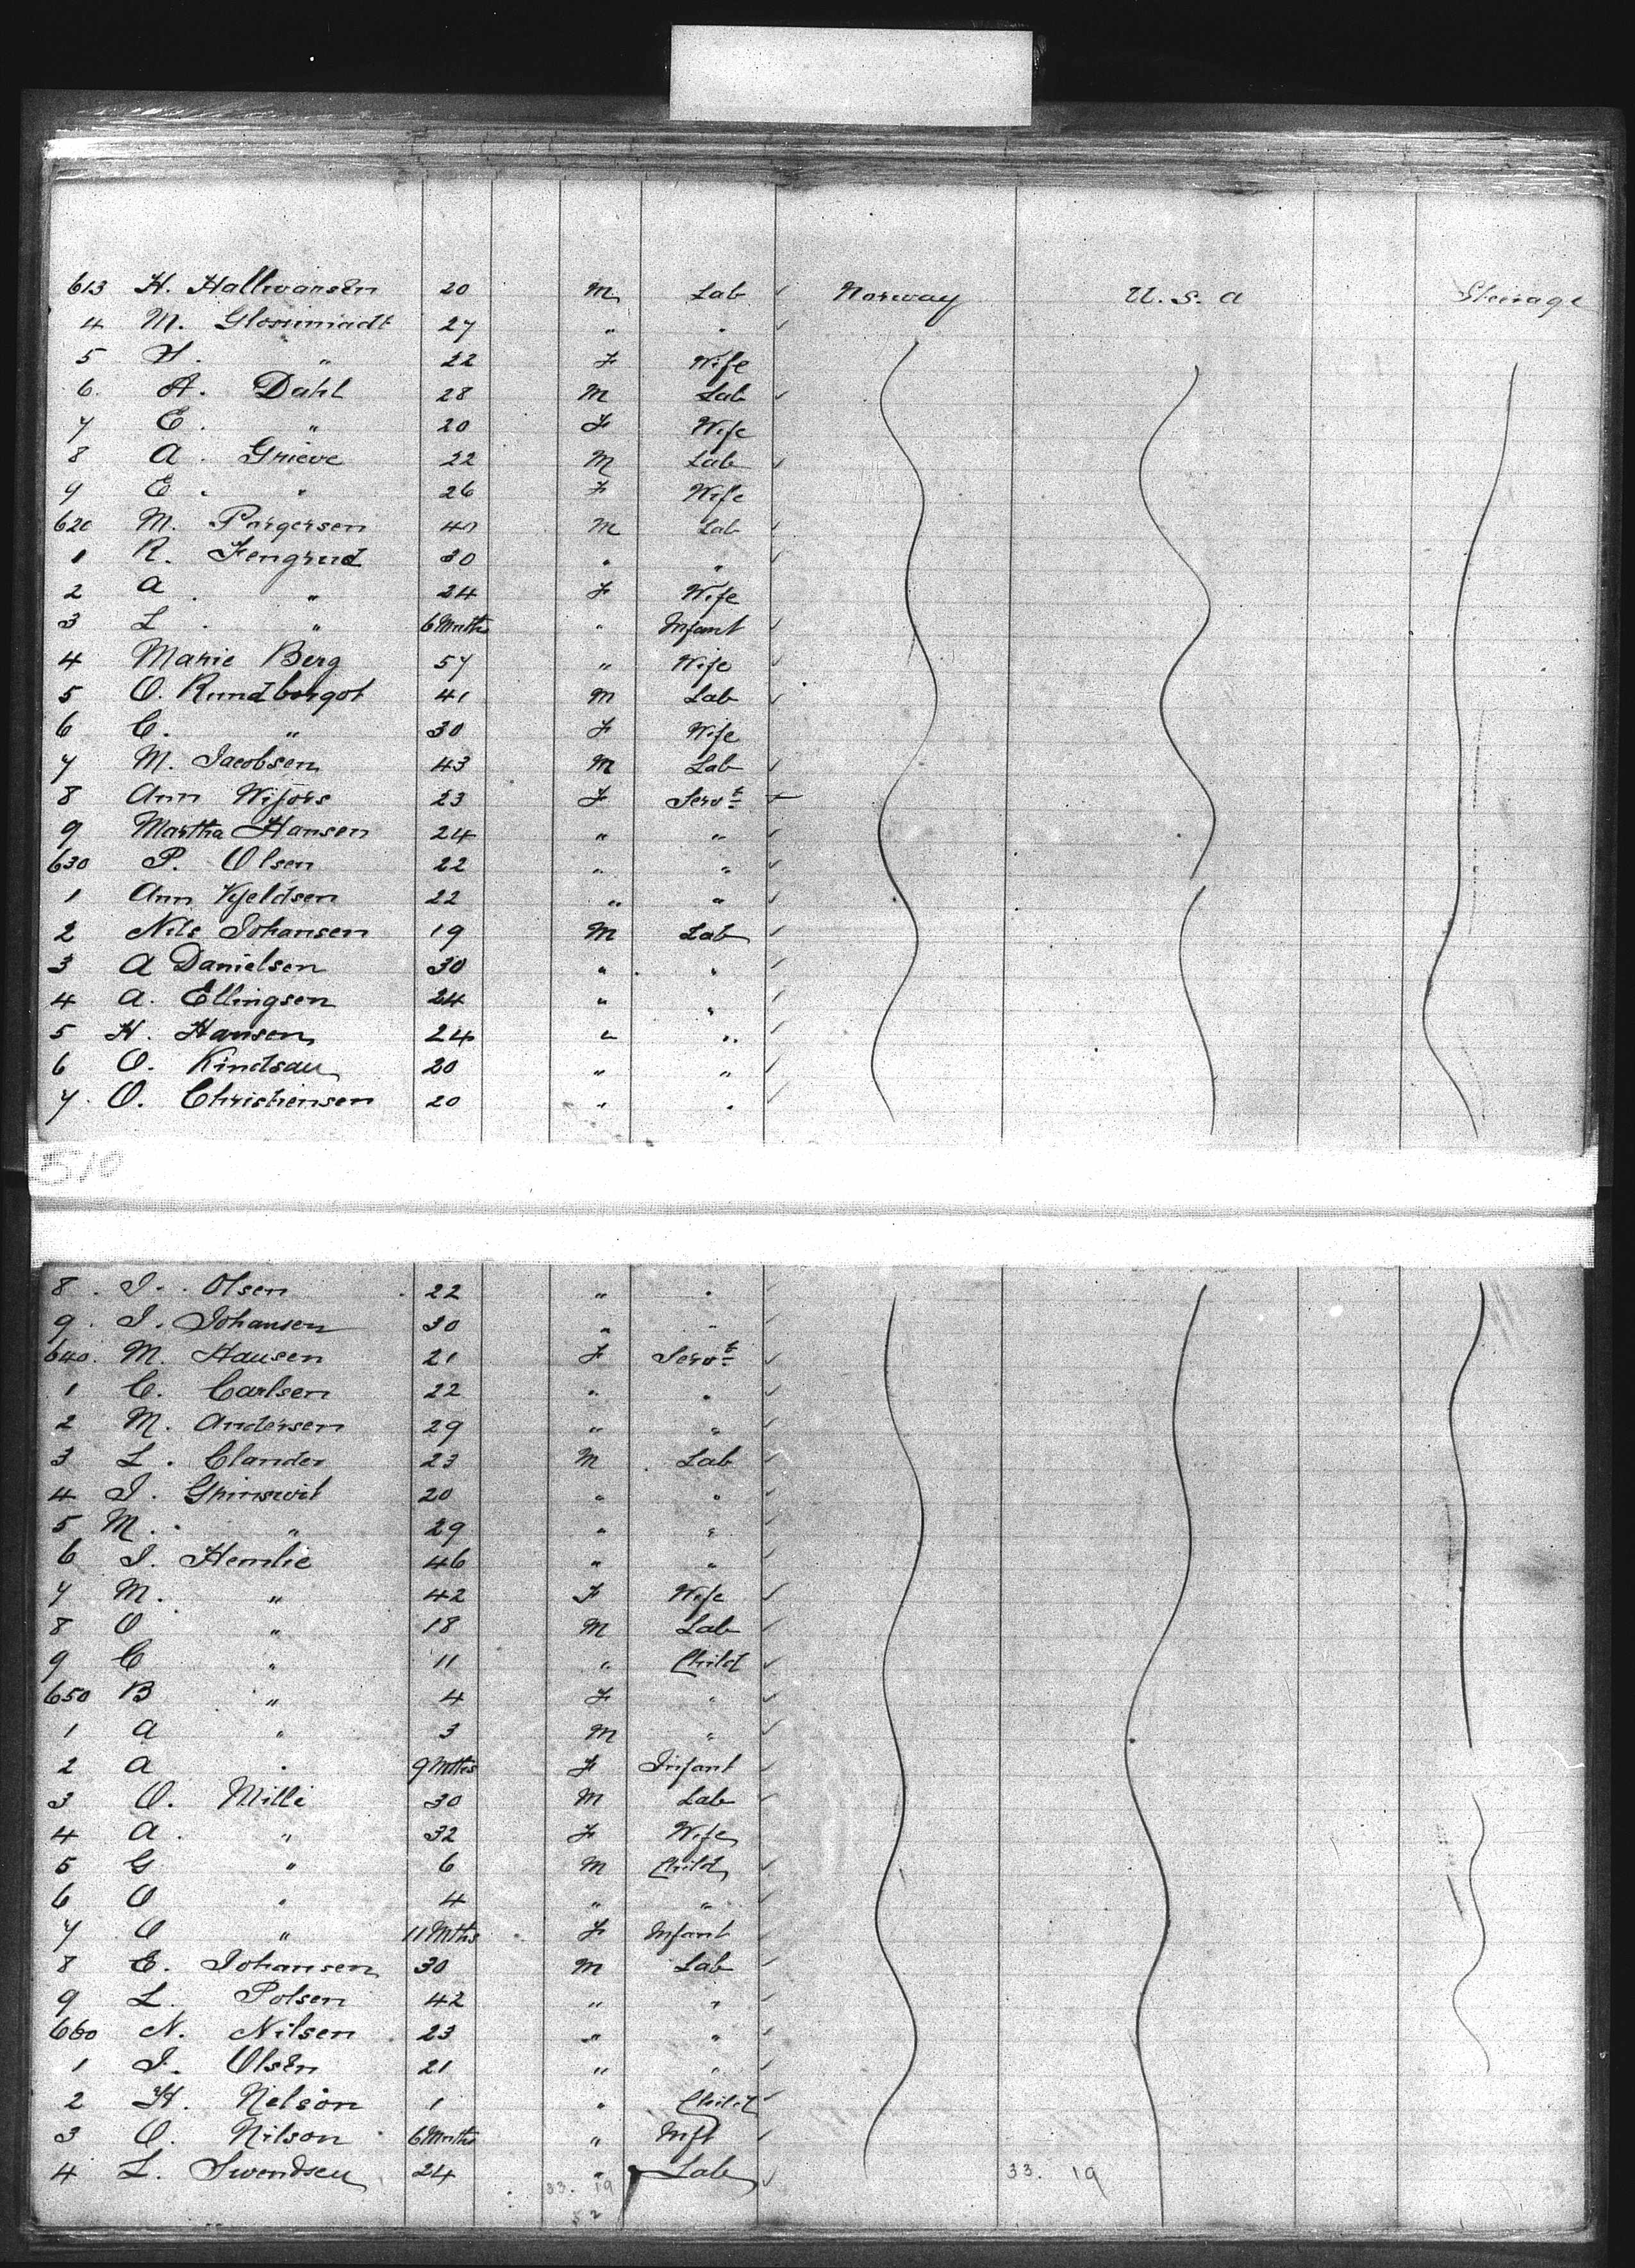 613 H. Hallwansen 20 M Lab Norway U.S.a Steerage
4 M. 27 " "
5 H. " 22 F Wife
6. A. Dahl 28 M Lab
7 E. " 20 F Wife
8 A. Grieve 22 M Lab
9 E. " 26 F Wife
620 M. Porgersen M Lab
1 R. Fengrud 30 " "
2 A. " 24 F Wife
3 L. " 6 Mnths " Infant
4 Marie Berg 57 " Wife
5 O. Rundborgot 41 M Lab
6 C. " 30 F Wife
7 M. Jacobsen 43 M Lab
8 Ann Wifors 23 F Servt
9 Martha Hansen 24 " "
630 P. Olsen 22 " "
1 Ann Kjeldsen 22 " "
2 Nils Johansen 19 M Lab
3 A Danielsen 30 " "
4 A. Ellingsen 24 " "
5 H. Hansen 24 " "
6 O. Kindsau 20 " "
7. O. Christiensen 20 " "
510
8. I. Olsen 22 " "
9. I. Johansen 30 " "
640. M. Hausen 21 F Servt
1 C. Carlsen 22 " "
2 M. Andersen 29 " "
3 L. Clander 23 M Lab
4 I. 20 " "
5 M. " 29 " "
6 I. Hemlie 46 " "
7 M. " 42 F Wife
8 O " 18 M Lab
9 C " 11 " Child
650 B " 4 F "
1 A " 3 M "
2 A " 9 Mths F Infant
3 O. Milli 30 M Lab
4 A. " 32 F Wife
5 G " 6 M Child
6 O " 4 " "
7 O " 11 Mths F Infant
8 E. Johansen 30 M Lab
9 L. Polsen 42 " "
660 N. Nilsen 23 " "
1 I. Olsen 21 " "
2 H. Nelson 1 " Child
3 O. Nilson 6 Mnths " Inft
4 L. Swendsen 24 " Lab
33. 19 33. 19
52